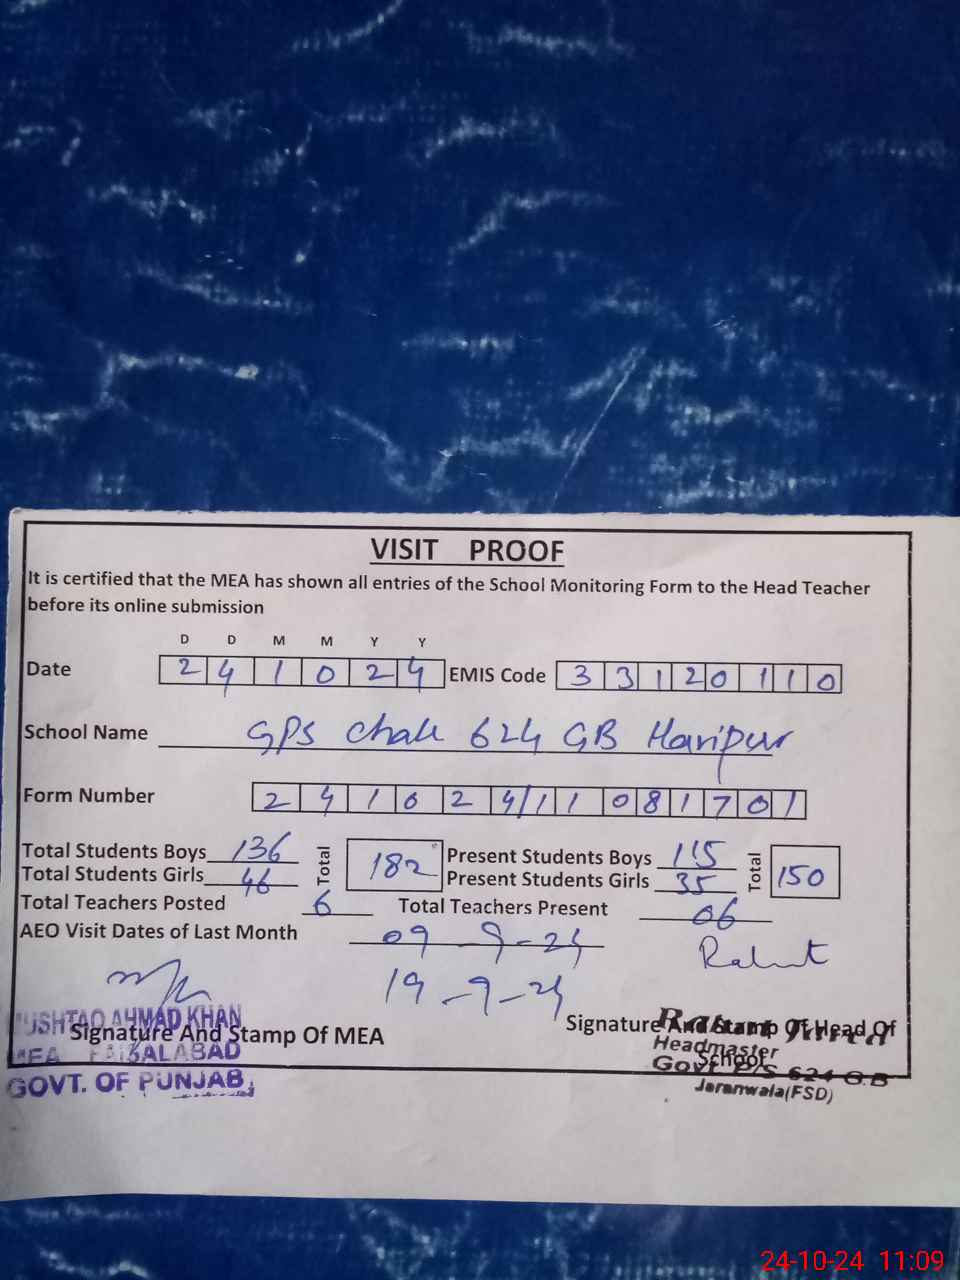 VISIT PROOF
It is certified that the MEA has shown all entries of the School Monitoring Form to the Head Teacher
before its online submission
D D M M Y Y
Date 2 4 1 0 2 4 EMIS Code 3 3 1 2 0 1 1 0
School Name GPS Chak 624 GB Haripur
Form Number 2 4 1 0 2 4/1 1 0 8 1 7 0 1
Total Students Boys 136 Total 182 Present Students Boys 115 Total 150
Total Students Girls 46 Present Students Girls 35
Total Teachers Posted 6 Total Teachers Present 06
AEO Visit Dates of Last Month 09-9-24
19-9-24
MUSHTAQ AHMAD KHAN
Signature And Stamp Of MEA Signature And Stamp Of Head Of
School
MEA FAISALABAD
GOVT. OF PUNJAB
Headmaster
Govt. P/S 624 G.B
Jaranwala(FSD)
24-10-24 11:09